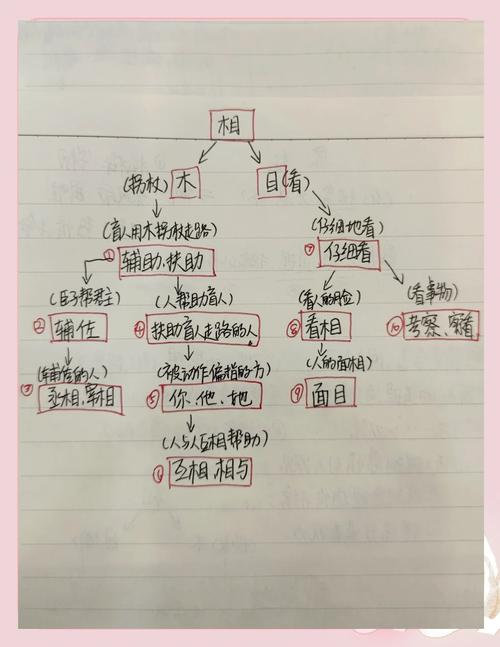 相
(拐杖) 木
目 (看)
(盲人用木拐杖走路)
① 辅助、扶助
(仔细地看)
⑦ 仔细看
(臣子帮君主)
② 辅佐
(人帮助盲人)
④ 扶助盲人走路的人
(看人的脸)
⑧ 看相
(看事物)
⑩ 考察、察看
(辅佐的人)
③ 丞相、宰相
(被动作偏指的一方)
⑤ 你、他、她
(人的面相)
⑨ 面目
(人与人互相帮助)
互相、相与